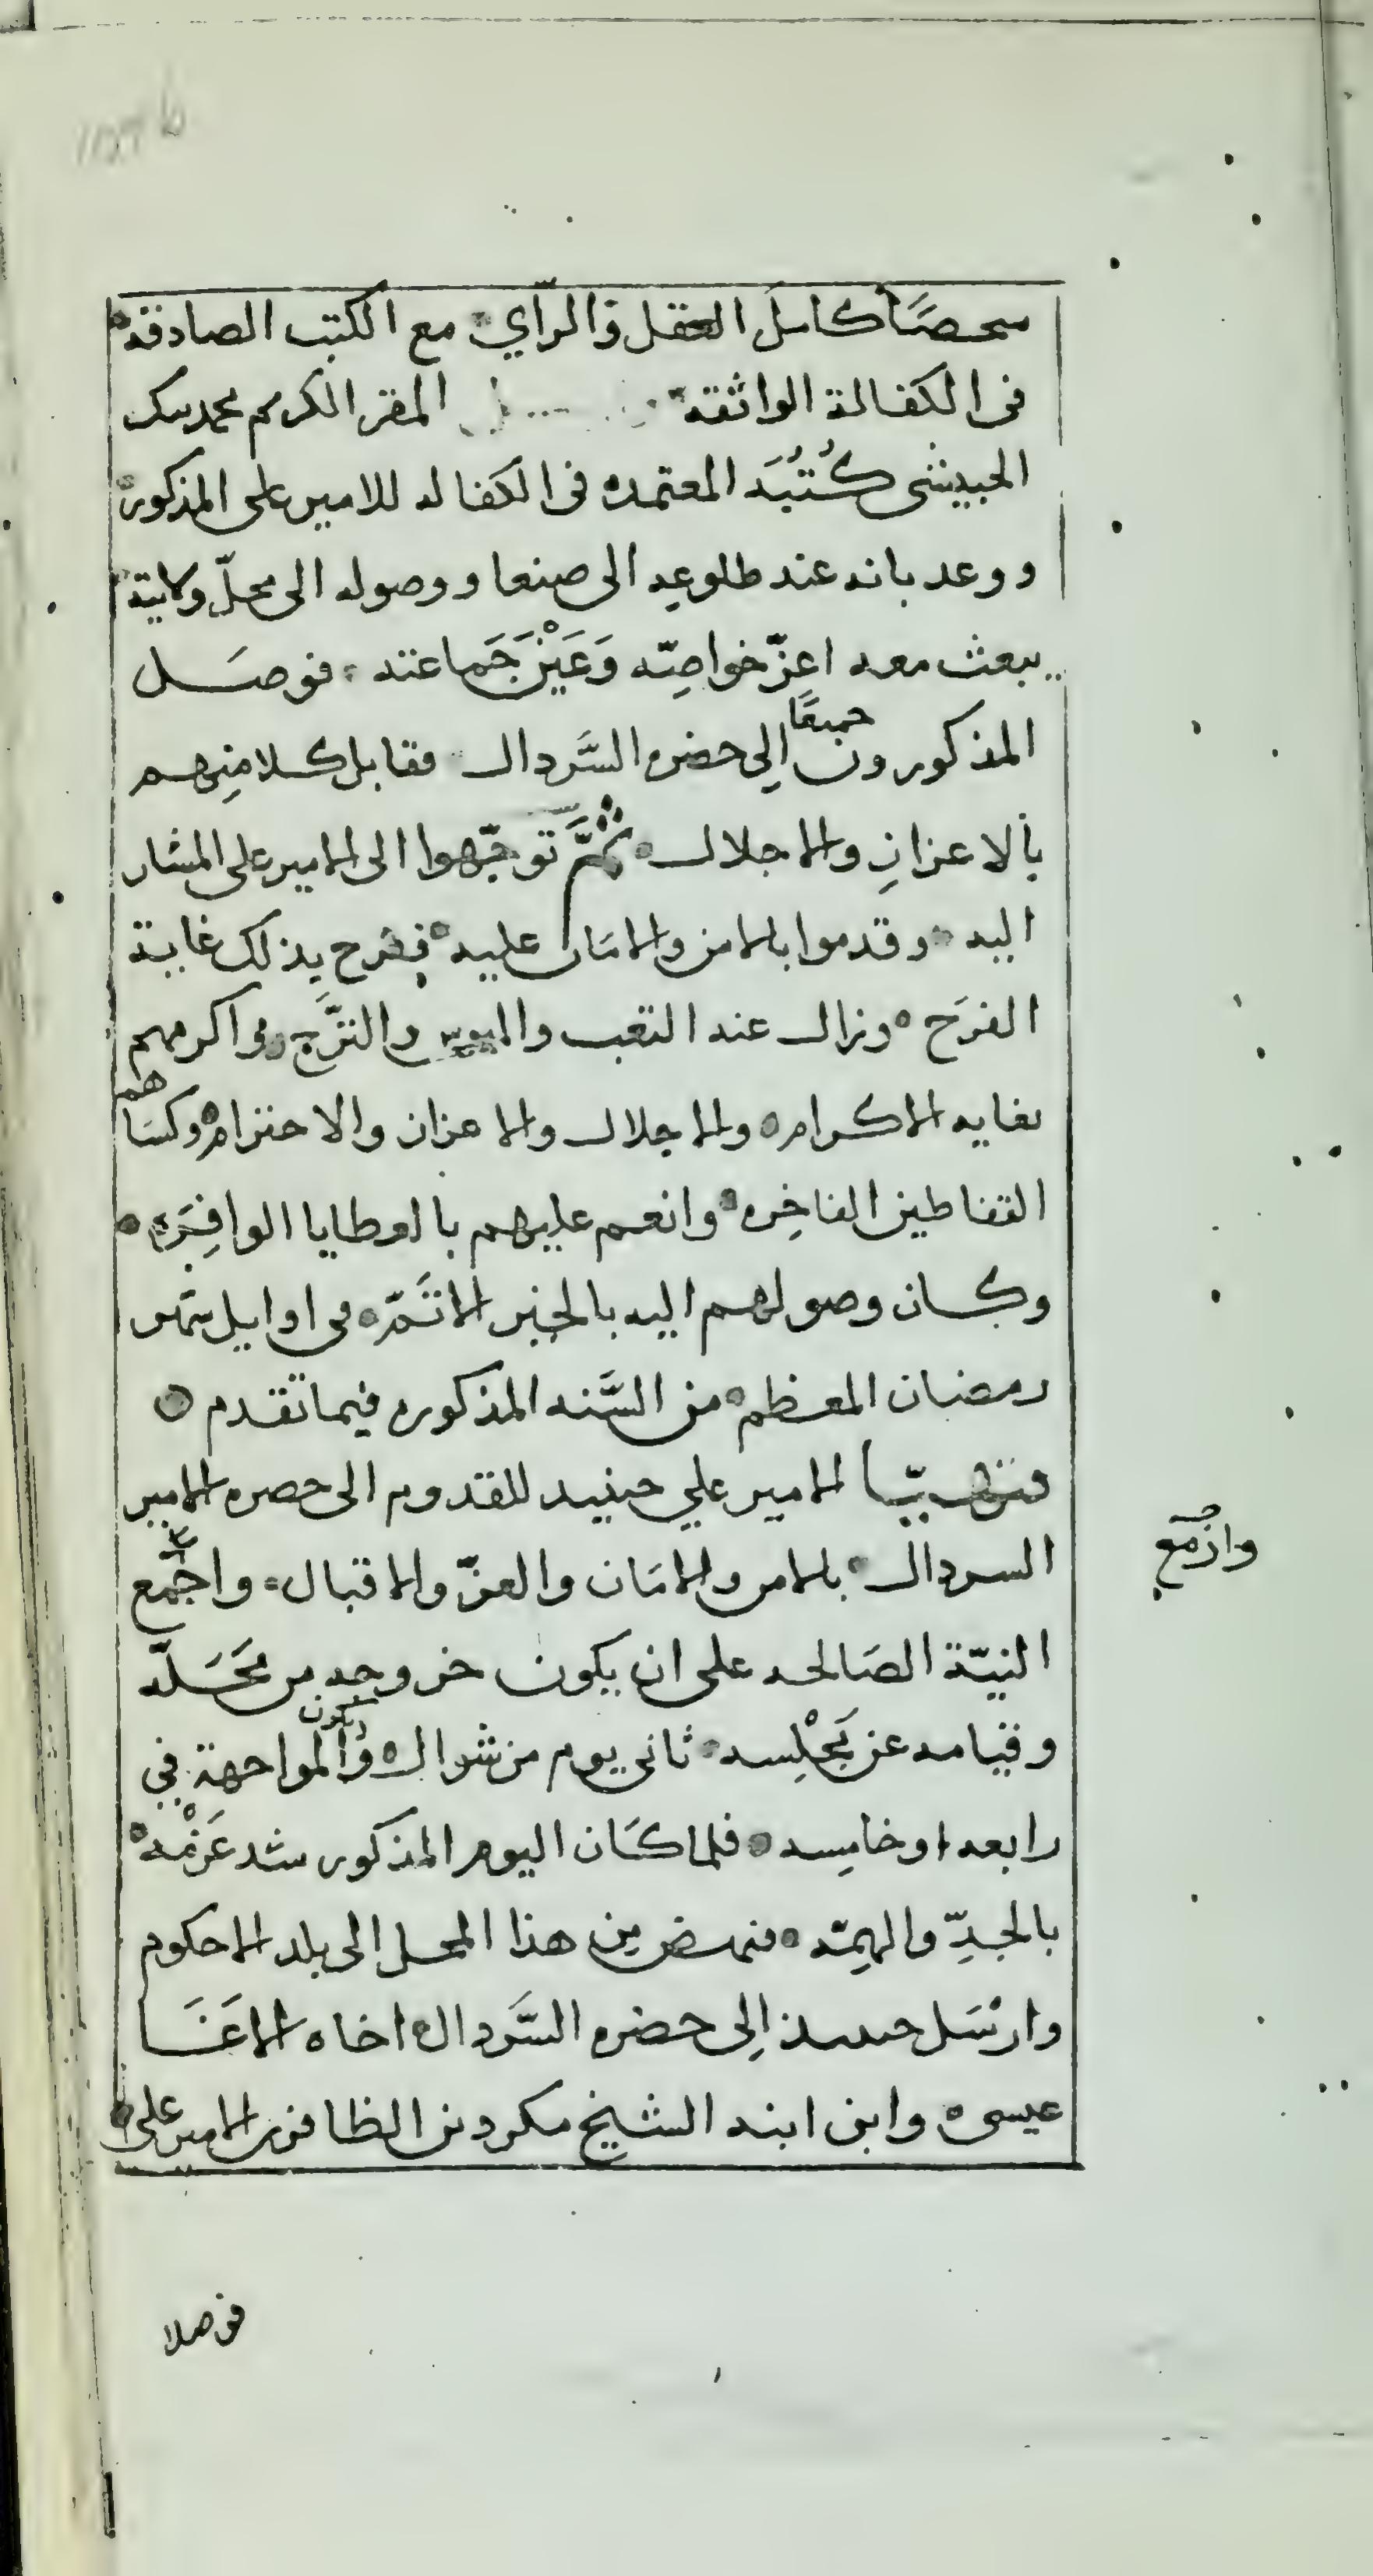 شخصًا كامل العقل والرّاي مع الكتب الصادقة
فى الكفالة الواثقة المقر الكريم محمد بيك
الحبيشى كُتُبَه المعتمده فى الكفاله للامير على المذكور
ووعد بانه عند طلوعه الى صنعا ووصوله الى محلّ ولايته
يبعث معه اعزّ خواصِّه وَعَيْنَ جَماعته فوصَل
المذكورون جميعًا الِى حضره السَّردال فقابل كلا مِنهم
بالاعزازِ والاجلال ثُمَّ توجّهوا الى الامير على المشار
اليه وقدموا بالامن والامَان عليه ففرح بذلك غاية
الفرَح وزال عنه التعب والبوس والتَّرَح واكرمهم
بغايه الاكرام والاجلال والاعزاز والاحترام وكسَاهم
القفاطين الفاخِره وانعم عليهم بالعطايا الوافِرَه
وكان وصولهم اليه بالخبر الاتَمّ فى اوايل شهر
رمضان المعظم من السَّنه المذكوره فيما تقدم
فتهيّأ الامير علي حينيذ للقدوم الى حضره الامير
السردال بالامن والامَان والعزّ والاقبال واجمع
وازمع
النيّة الصَالحه على ان يكون خروجه من مَحَلّه
وقيامه عن مَجْلِسه ثانى يوم من شوال وتكون المواجهة في
رابعه او خامِسه فلما كَان اليوم المذكور شد عَزْمه
بالجدِّ والهِمّه فنهض مِن هذا المحل الى بلد الاحكوم
وارْسَل حينيذ الِى حضره السَّردال اخاه الاغَا
عيسى وابن ابنه الشيخ مكرد بن الظافر الامير على
فوصلا